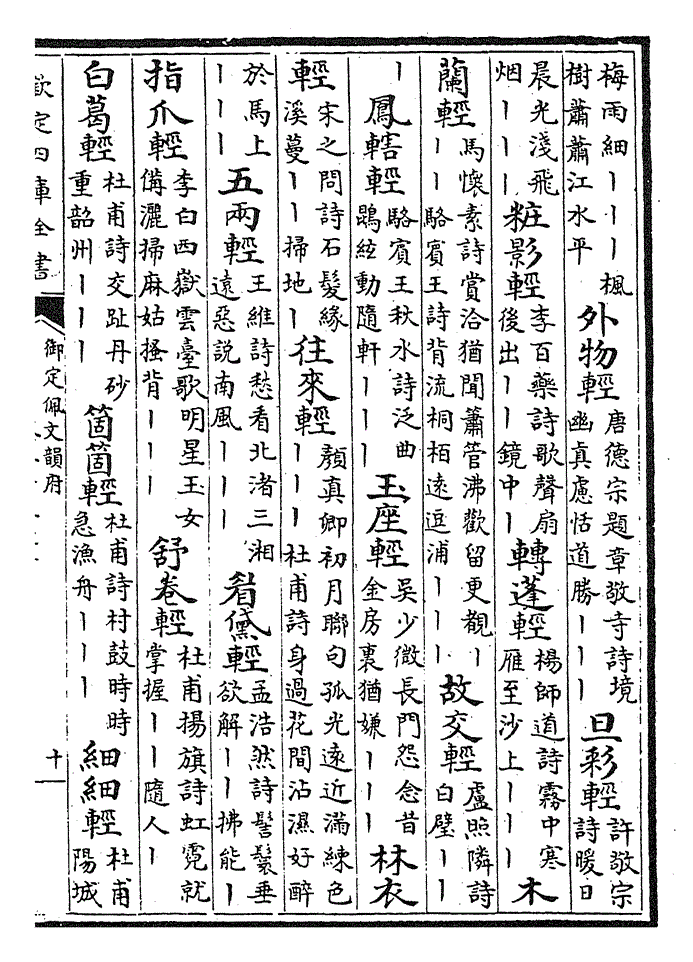 梅雨細丨丨丨楓樹蕭蕭江水平 外物輕 唐德宗題章敬寺詩境幽真慮恬道勝丨丨丨 旦彩輕 許敬宗詩暖日
晨光淺飛烟丨丨丨 粧影輕 李百藥詩歌聲扇後出丨丨鏡中丨 轉蓬輕 楊師道詩霧中寒雁至沙上丨丨丨 木
蘭輕 馬懷素詩賞洽猶聞簫管沸歡留更覩丨丨丨駱賓王詩背流桐柏遠逗浦丨丨丨 故交輕 盧照隣詩白璧丨丨
丨 鳳轄輕 駱賓王秋水詩泛曲鵾絃動隨軒丨丨丨 玉座輕 吳少微長門怨念昔金房裏猶嫌丨丨丨 林衣
輕 宋之問詩石髮緣溪蔓丨丨掃地丨 往來輕 顏真卿初月聯句孤光遠近滿練色丨丨丨杜甫詩身過花間沾濕好醉
於馬上丨丨丨 五兩輕 王維詩愁看北渚三湘遠惡說南風丨丨丨 眉黛輕 孟浩然詩髻鬟垂欲解丨丨拂能丨
指爪輕 李白西嶽雲臺歌明星玉女備灑掃麻姑搔背丨丨丨 舒卷輕 杜甫揚旗詩虹霓就掌握丨丨隨人丨
白葛輕 杜甫詩交趾丹砂重韶州丨丨丨 箇箇輕 杜甫詩村鼓時時急漁舟丨丨丨 細細輕 杜甫陽城
欽定四庫全書
御定佩文韻府
十